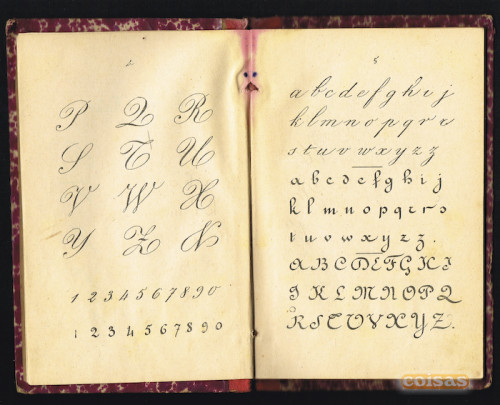 P Q R
S T U
V W X
Y Z N
1 2 3 4 5 6 7 8 9 0
1 2 3 4 5 6 7 8 9 0
5
a b c d e f g h i j
k l m n o p q r r
s t u v w x y z z
a b c d e f g h i j
k l m n o p q r r s
t u v w x y z z.
A B C D E F G H I
J K L M N O P Q
R S T U V X Y Z.
coisas